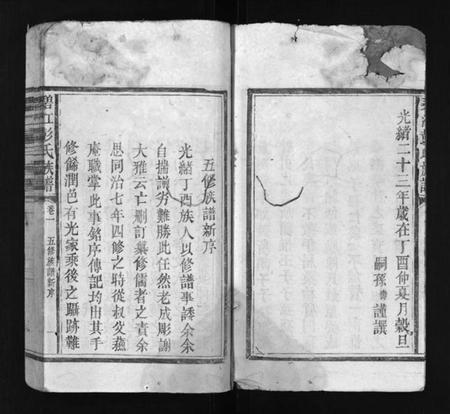 光緒二十三年歲在丁酉仲夏月穀旦
嗣孫 謹譔
五修族譜新序
光緒丁酉族人以修譜事諉余余
自揣譾劣難勝此任然老成彫謝
大雅云亡刪訂纂修儒者之責余
思同治七年四修之時從叔父蓀
庵職掌此事銘序傳記均由其手
修餙潤色有光家乘後之躡跡難
碧江彭氏族譜
卷一
五修族譜新序
一